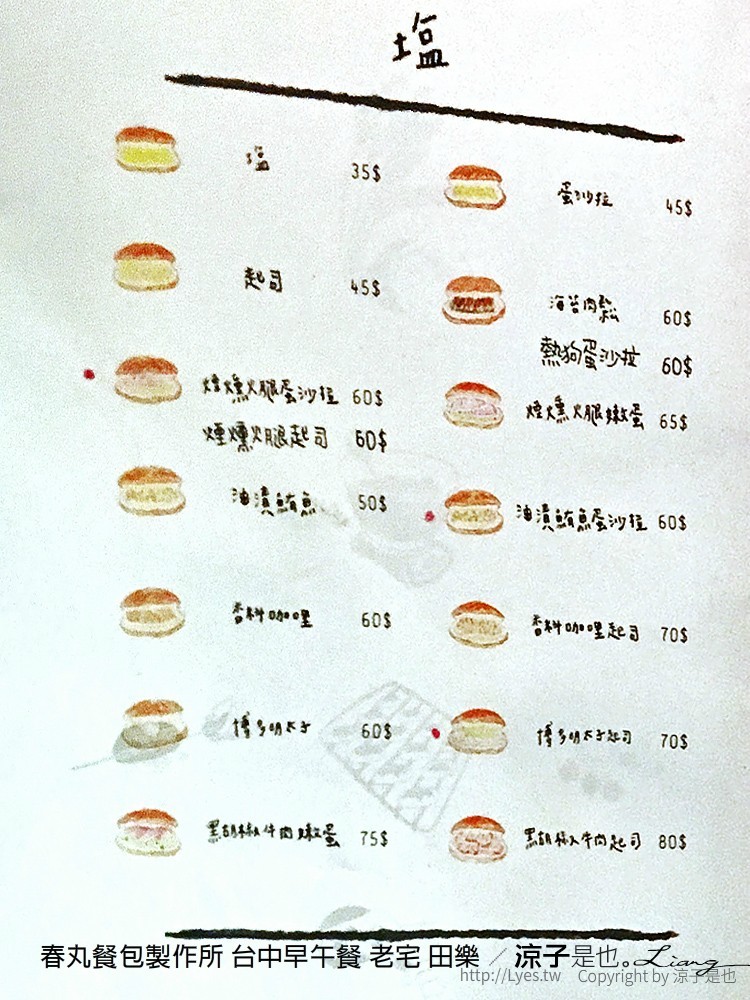 塩
塩 35$
蛋沙拉 45$
起司 45$
海苔肉鬆 60$
熱狗蛋沙拉 60$
煙燻火腿蛋沙拉 60$
煙燻火腿嫩蛋 65$
煙燻火腿起司 60$
油漬鮪魚 50$
油漬鮪魚蛋沙拉 60$
香料咖哩 60$
香料咖哩起司 70$
博多明太子 60$
博多明太子起司 70$
黑胡椒牛肉嫩蛋 75$
黑胡椒牛肉起司 80$
春丸餐包製作所 台中早午餐 老宅 田樂 ／ 涼子是也。Liang
http://Lyes.tw Copyright by 涼子是也